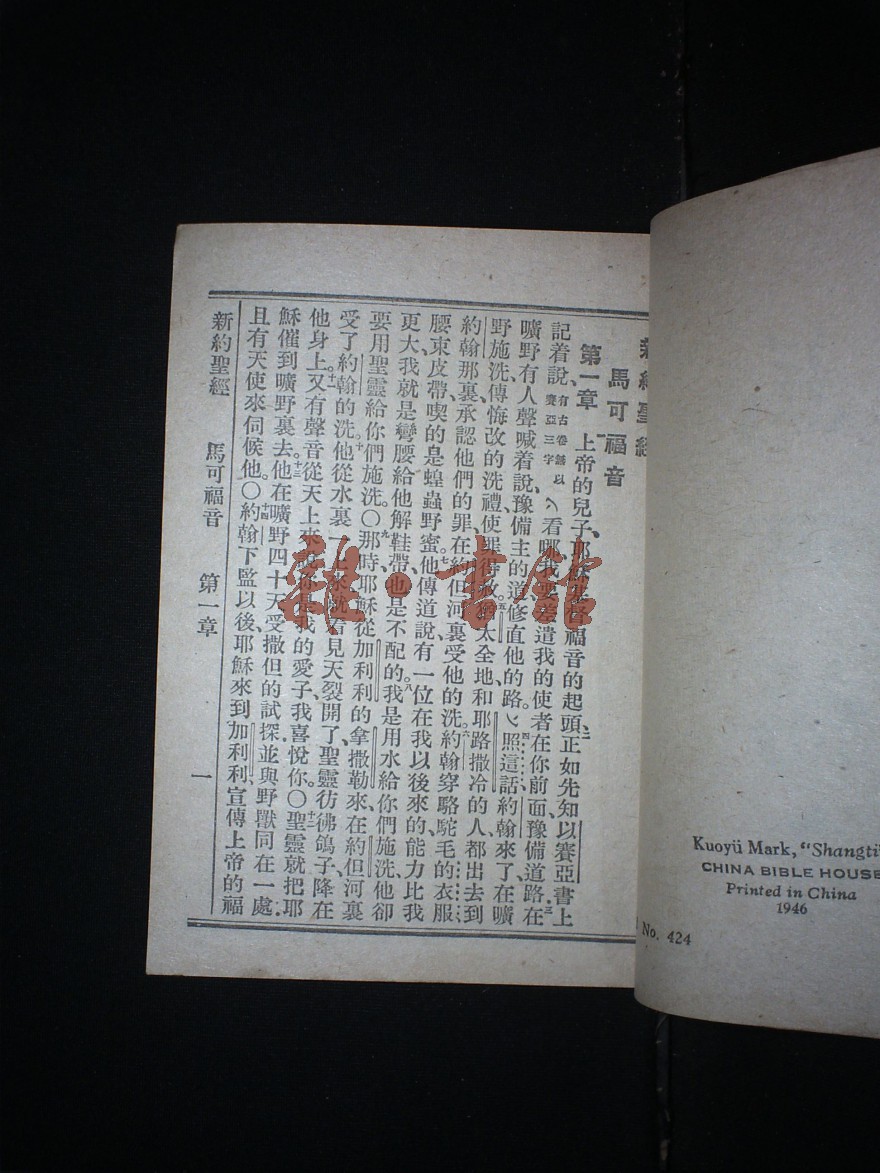 新約聖經
馬可福音
第一章 上帝的兒子、耶穌基督福音的起頭、二正如先知以賽亞書上
記着說、有古卷無以賽亞三字看哪我要差遣我的使者在你前面豫備道路、三在
曠野有人聲喊着說、豫備主的道修直他的路。四照這話約翰來了、在曠
野施洗、傳悔改的洗禮使罪得赦。五猶太全地和耶路撒冷的人都出去到
約翰那裏、承認他們的罪在約但河裏受他的洗。六約翰穿駱駝毛的衣服、
腰束皮帶、喫的是蝗蟲野蜜。七他傳道說有一位在我以後來的能力比我
更大、我就是彎腰給他解鞋帶、也是不配的。八我是用水給你們施洗、他卻
要用聖靈給你們施洗。〇九那時耶穌從加利利的拿撒勒來、在約但河裏
受了約翰的洗。十他從水裏一上來、就看見天裂開了、聖靈彷彿鴿子降在
他身上。十一又有聲音從天上來說你是我的愛子、我喜悅你。〇十二聖靈就把耶
穌催到曠野裏去。十三他在曠野四十天受撒但的試探並與野獸同在一處
且有天使來伺候他。〇十四約翰下監以後、耶穌來到加利利、宣傳上帝的福
新約聖經 馬可福音 第一章 一
Kuoyü Mark, "Shangti"
CHINA BIBLE HOUSE
Printed in China
1946
No. 424
雜·書館